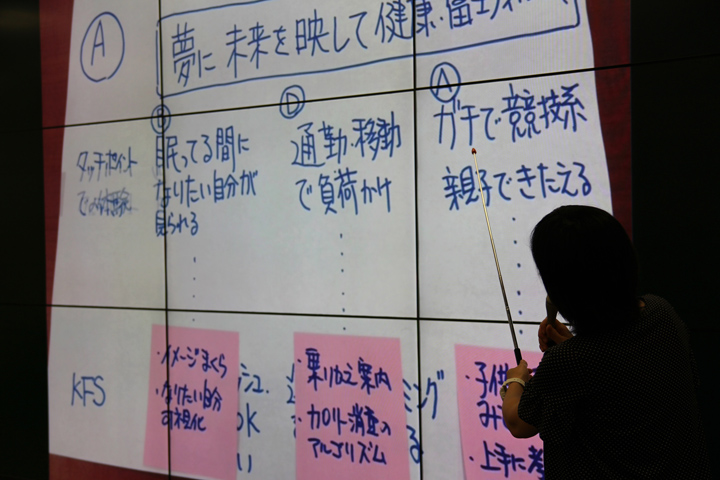 A
夢に 未来を映して健康・富士
B
眠ってる間に
なりたい自分が
見られる
D
通勤・移動
で負荷かけ
A
ガチで競技系
親子できたえる
タッチポイント
KFS
・イメージまくら
・なりたい自分
可視化
・乗りかえ案内
・カロリー消費の
アルゴリズム
・子供
・上手に